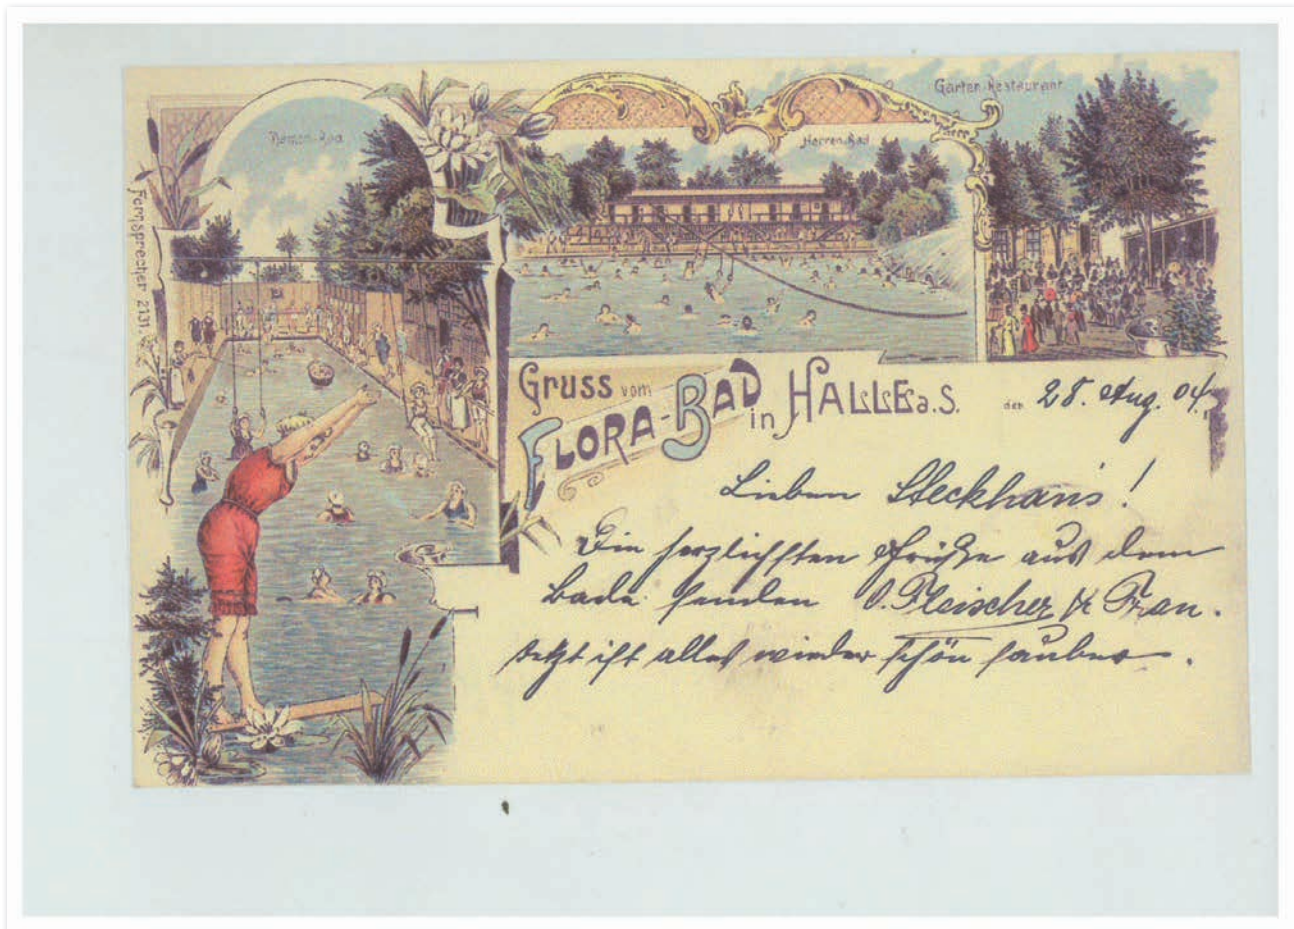 Damen-Bad
Herren-Bad
Garten-Restaurant
Fernsprecher 2131.
Gruss vom
FLORA-BAD in HALLE a.S. den 28. Aug. 04
Lieben Steckhans!
Die herzlichsten Grüße aus dem
Bade senden O. Fleischer & Frau.
Jetzt ist alles wieder schön sauber.